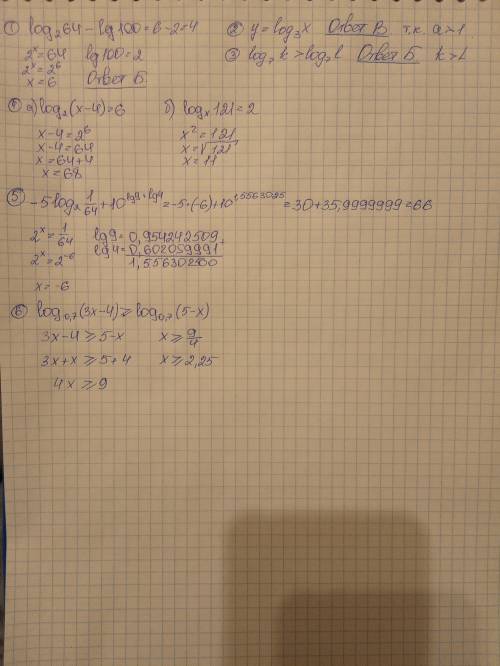 ① log₂64 - lg100 = 6 - 2 = 4
2ˣ = 64 lg100 = 2
2ˣ = 2⁶
x = 6 Ответ Б
② y = log₃x Ответ В т.к. a > 1
③ log₇k > log₇l Ответ Б k > l
④ а) log₂(x-4) = 6
x - 4 = 2⁶
x - 4 = 64
x = 64 + 4
x = 68
б) logₓ121 = 2
x² = 121
x = √121
x = 11
⑤ -5log₂ 1/64 + 10^(lg9+lg4) = -5·(-6) + 10^1,5563025 = 30 + 35,9999999 = 66
2ˣ = 1/64 lg9 = 0,954242509
2ˣ = 2⁻⁶ lg4 = 0,602059991
x = -6 1,556302500
⑥ log₀,₇(3x-4) ≥ log₀,₇(5-x)
3x - 4 ≥ 5 - x x ≥ 9/4
3x + x ≥ 5 + 4 x ≥ 2,25
4x ≥ 9